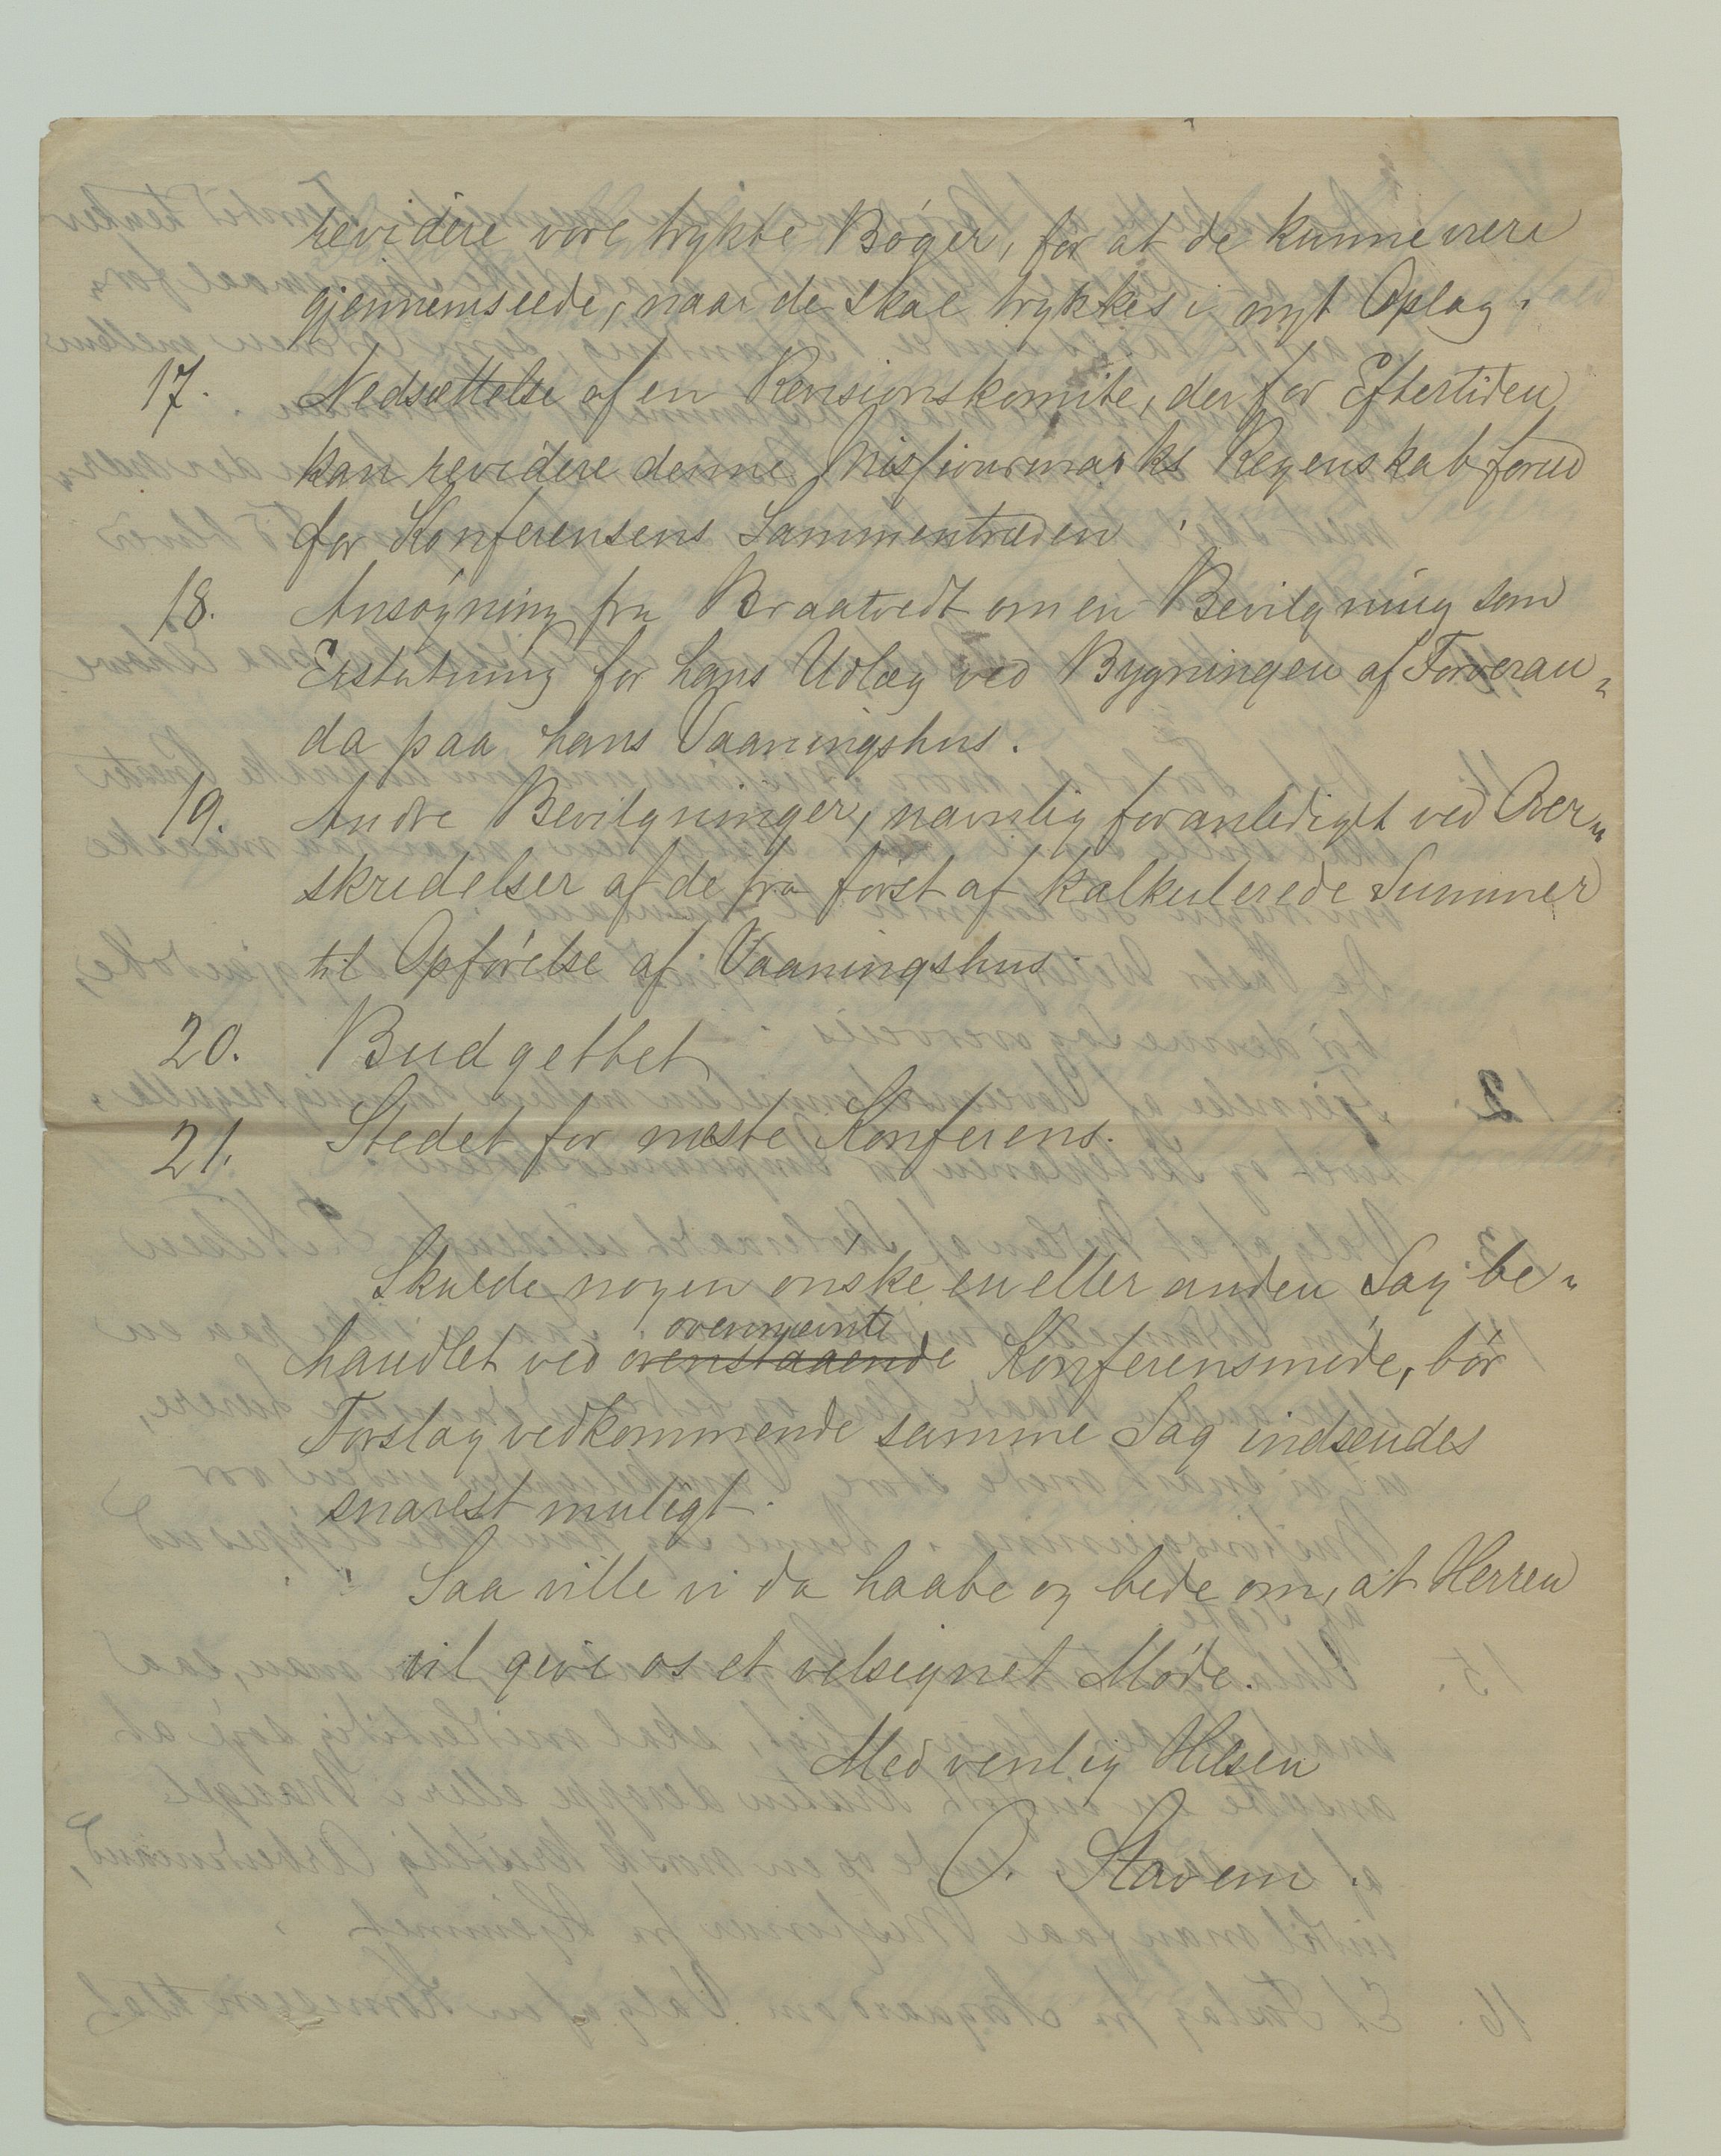 revidere vore trykte Bøger, for at de kunne være
gjennemseede, naar de skal trykkes i nyt Oplag.
17. Nedsættelse af en Revisionskomite, der for Eftertiden
kan revidere denne Missionsmarks Regenskab forud
for Konferensens Sammentræden.
18. Ansøgning fra Braatvedt om en Bevilgning som
Erstatning for hans Udlæg ved Bygningen af Forveran=
da paa hans Vaaningshus.
19. Andre Bevilgninger, navnlig foranlediget ved Over=
skridelser af de fra først af kalkulerede Summer
til Opførelse af Vaaningshus.
20. Budgettet
21. Stedet for næste Konferens.
Skulde nogen ønske en eller anden Sag be=
ovennævnte
handlet ved ovenstaaende Konferensmøde, bør
Forslag vedkommende samme Sag indsendes
snarest muligt.
Saa ville vi da haabe og bede om, at Herren
vil give os et velsignet Møde.
Med venlig Hilsen
O. Stavem.